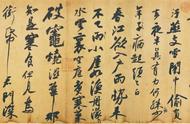 汙燕支雪闇中偷負
去夜半真有力何殊
年子病起頭已白
春江欲入戶雨勢來
不已雨小屋如漁舟濛濛
水雲裏空庖煮寒菜
破竈燒濕葦那
知是寒食但見烏
銜帋君門深